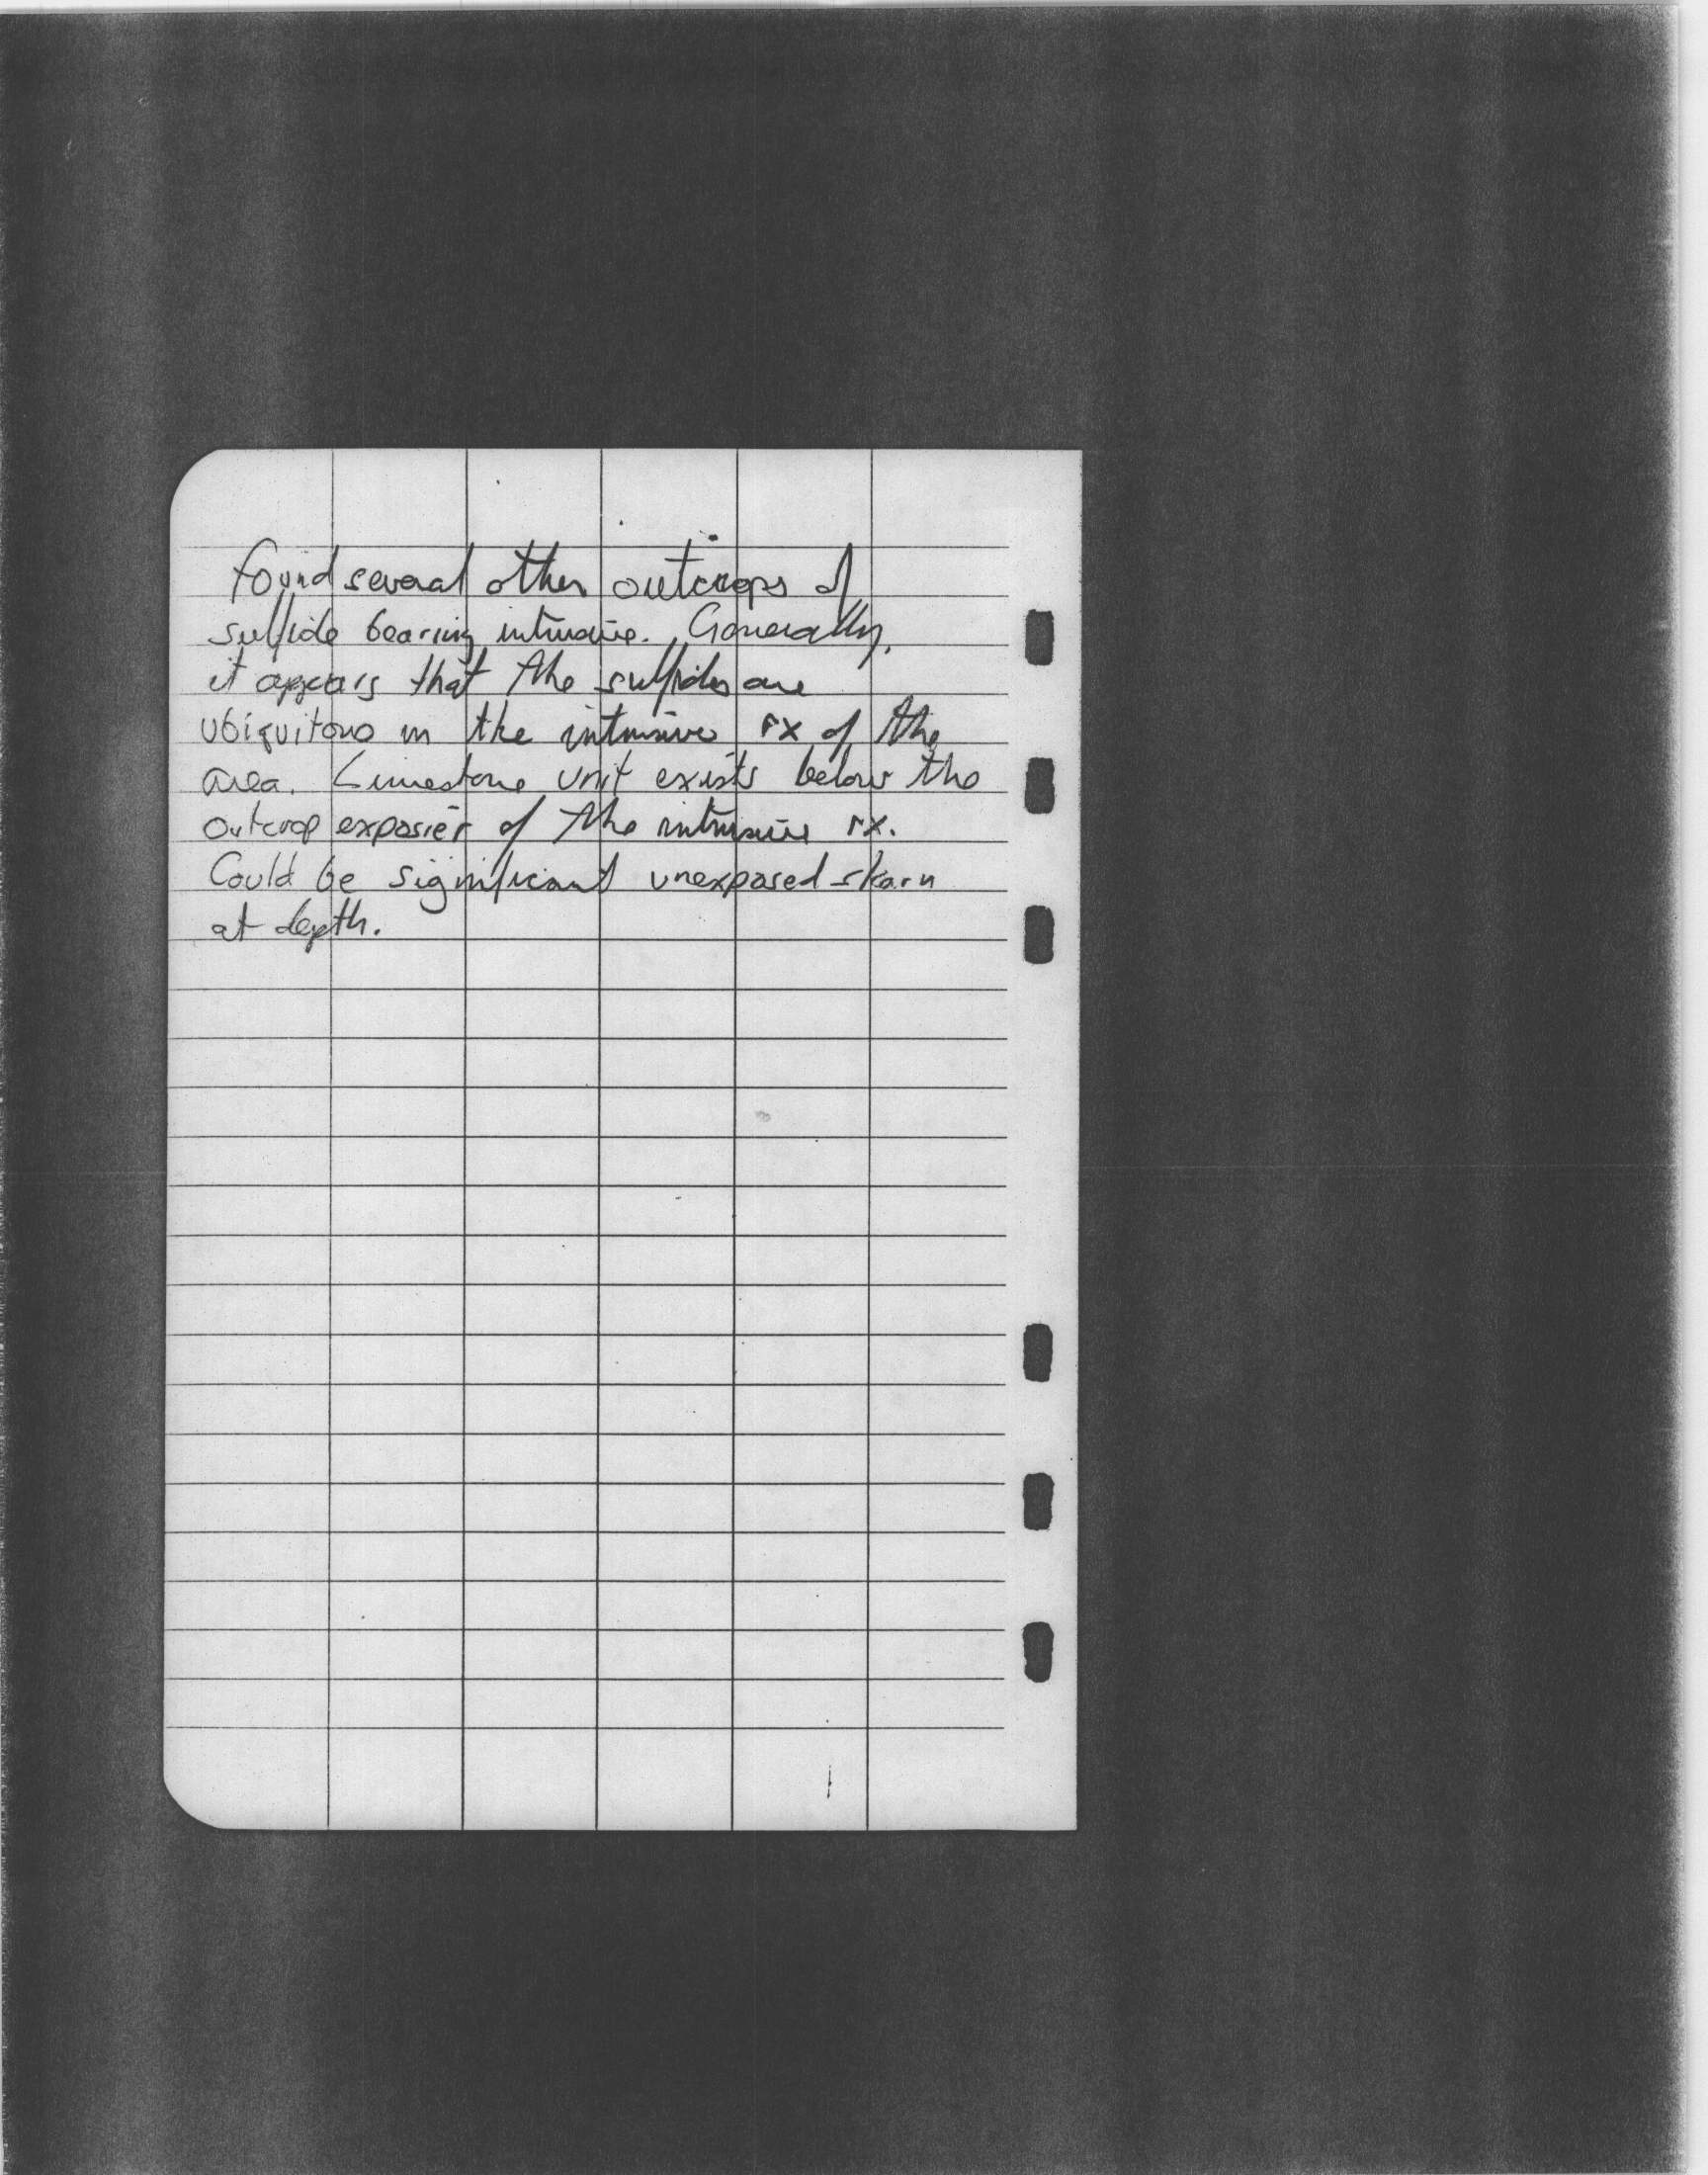 found several other outcrops of
sulfide bearing intrusive. Generally,
it appears that the sulfides are
ubiquitous in the intrusive rx of the
area. Limestone unit exists below the
outcrop exposier of the intrusive rx.
Could be significant unexposed skarn
at depth.